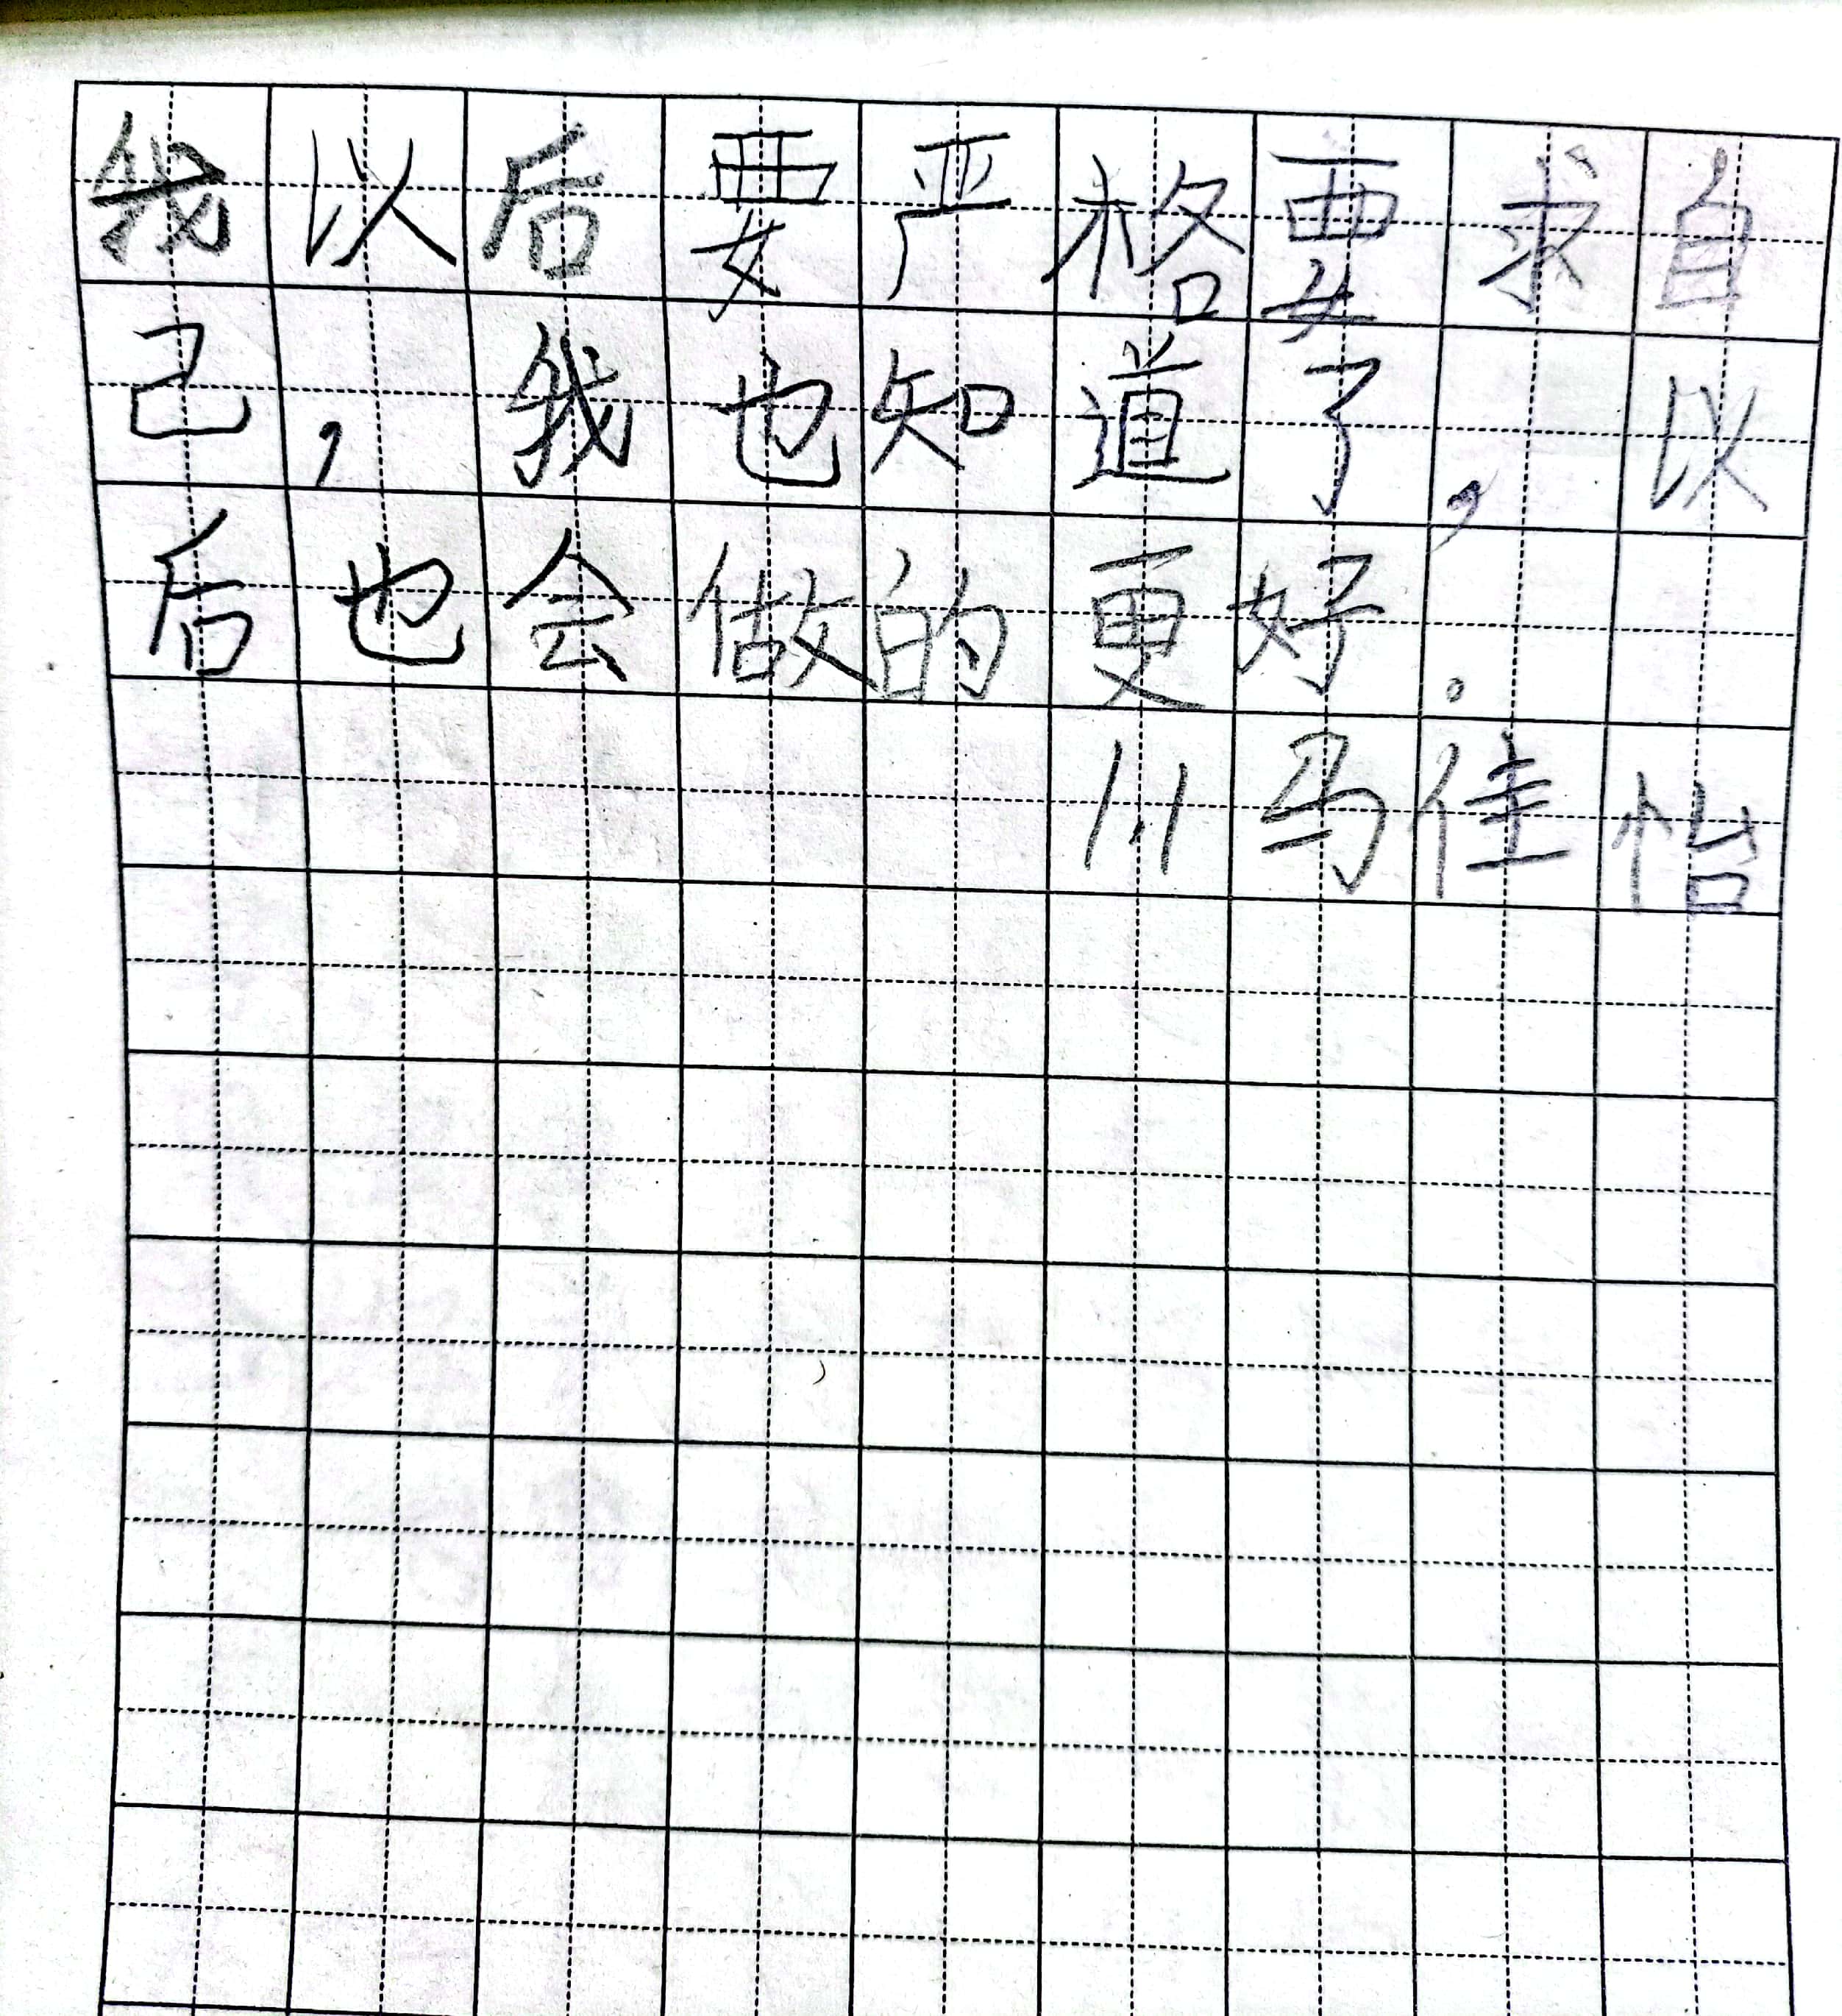 我以后要严格要求自
己，我也知道了，以
后也会做的更好。
马佳怡